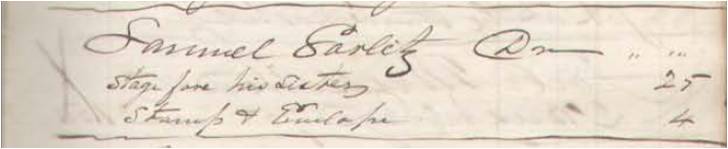 Samuel Garlitz Dr " "
Stage fare his sister 25
Stamp & Envelope 4